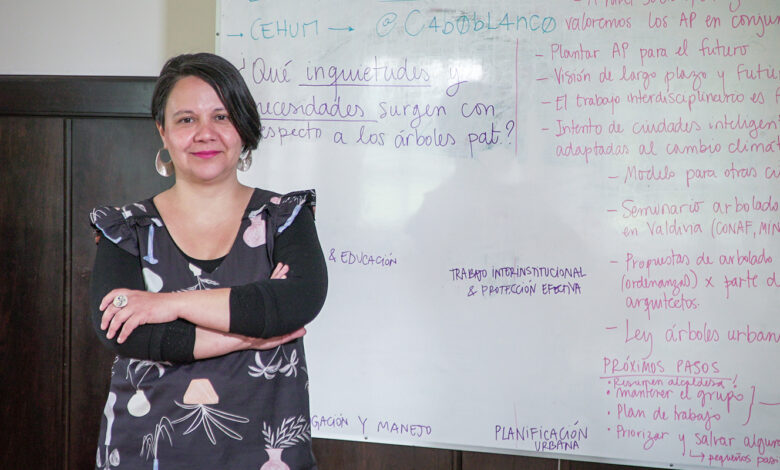 → CEHUM → @CabØbl4nc0
¿Qué inquietudes y
necesidades surgen con
respecto a los árboles pat.?
& EDUCACIÓN
TRABAJO INTERINSTITUCIONAL
& PROTECCIÓN EFECTIVA
GACIÓN Y MANEJO
PLANIFICACIÓN
URBANA
valoremos los AP en conjun
- Plantar AP para el futuro
- Visión de largo plazo y futur
- El trabajo interdisciplinario es f
- Intento de ciudades inteligen
adaptadas al cambio climát
- Modelo para otras ci
- Seminario arbolado
en Valdivia (CONAF, MIN
- Propuestas de arbolado
(ordenanzas) x parte d
arquitectos.
- Ley árboles urban
PRÓXIMOS PASOS
• Resumen alcaldesa!
• mantener el grupo
• Plan de trabajo
• Priorizar y salvar algun
→ pequeños pas